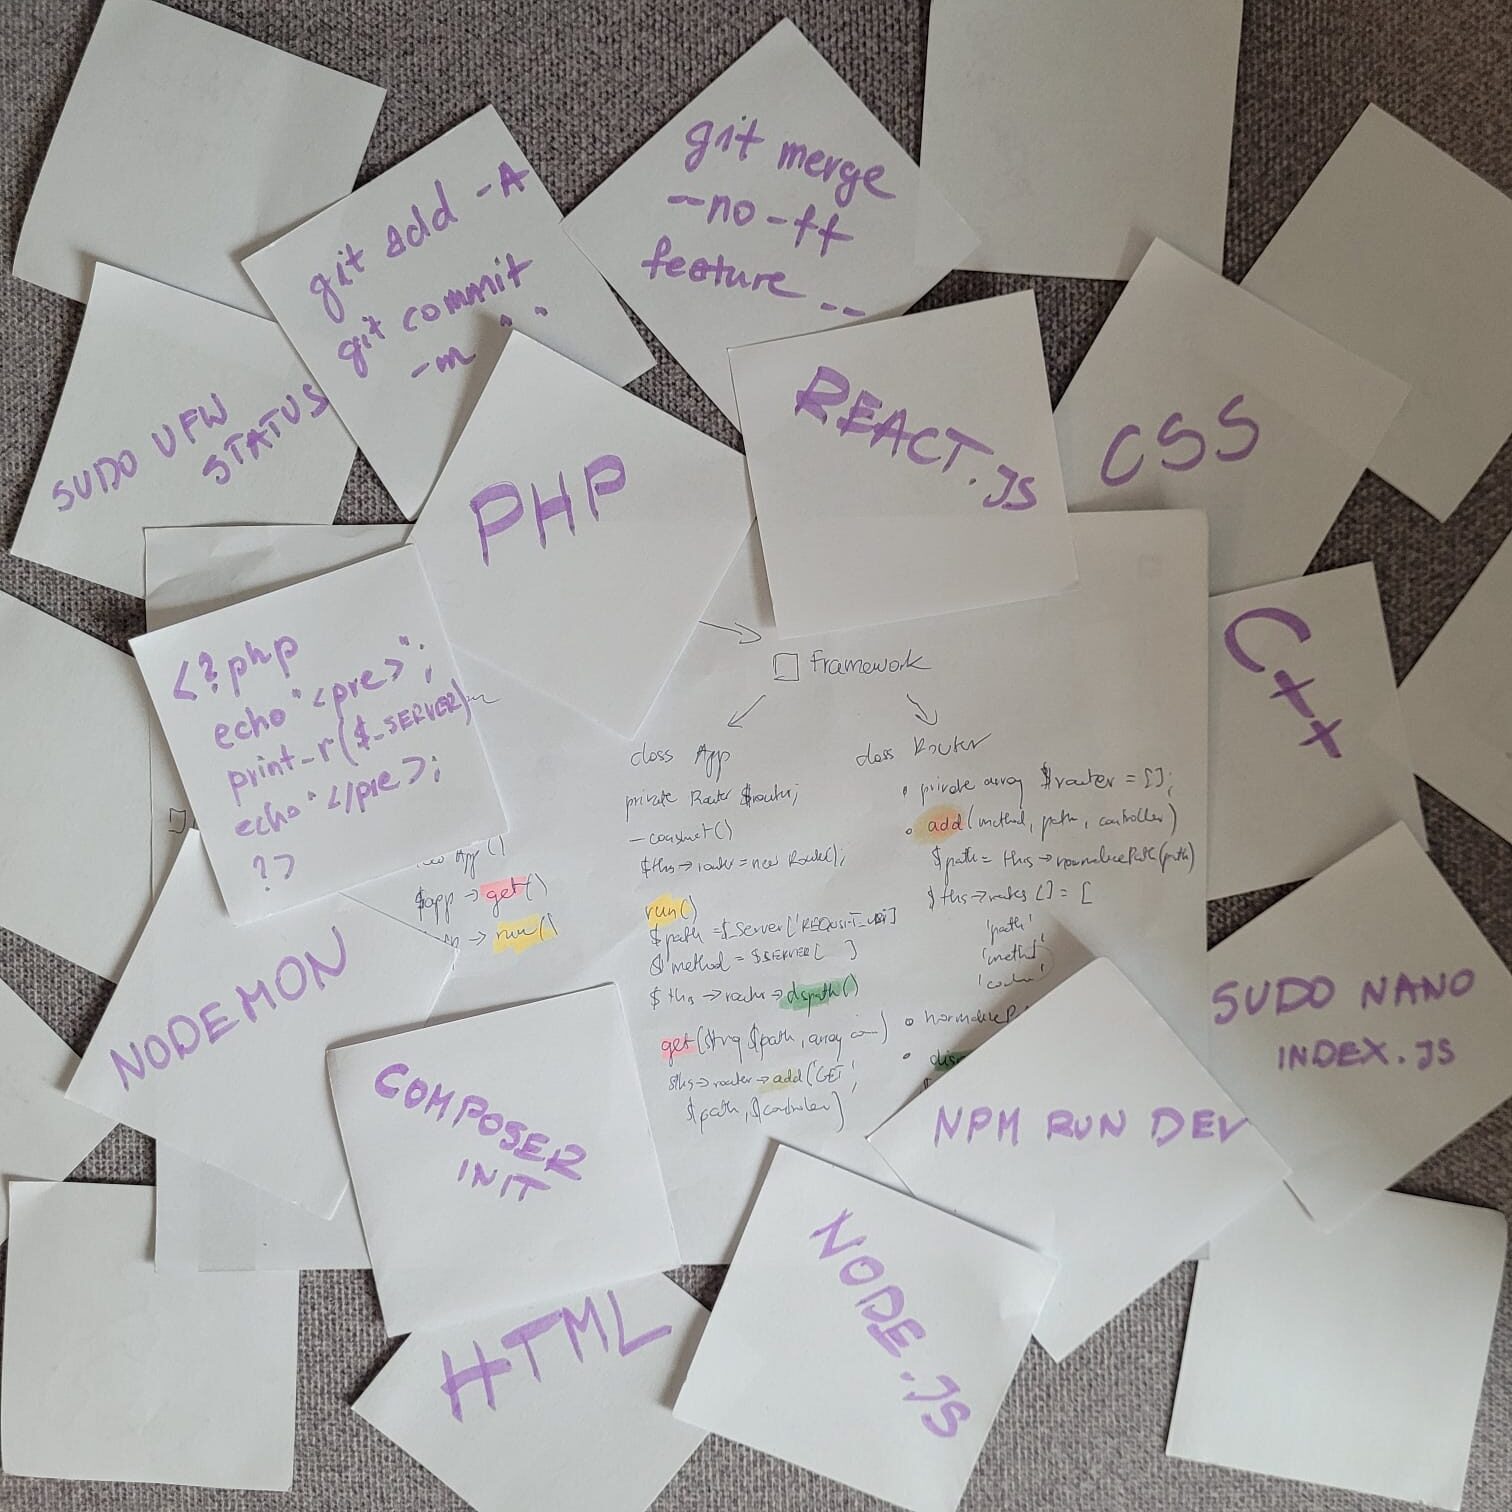 git merge
--no-ff
feature --
git add -A
git commit
-m " "
SUDO UFW
STATUS
PHP
REACT.JS
CSS
C++
<?php
echo "<pre>";
print-r($_SERVER)
echo "</pre>;
?>
Framework
class App
private Router $router;
- construct()
$this → router = new Router();
run()
$path = $_Server['REQUSIT_URI]
$method = $SERVER[ ]
$this → router → dispath()
get(string $path, array
$this → router → add('GET',
$path, $controller]
class Router
private array $router = [];
add(method, path, controller)
$path = this → normalizePath(path)
$this → routes [] = [
'path'
'method'
App()
$app → get()
→ run()
NODEMON
COMPOSER
INIT
SUDO NANO
INDEX.JS
NPM RUN DEV
NODE.JS
HTML